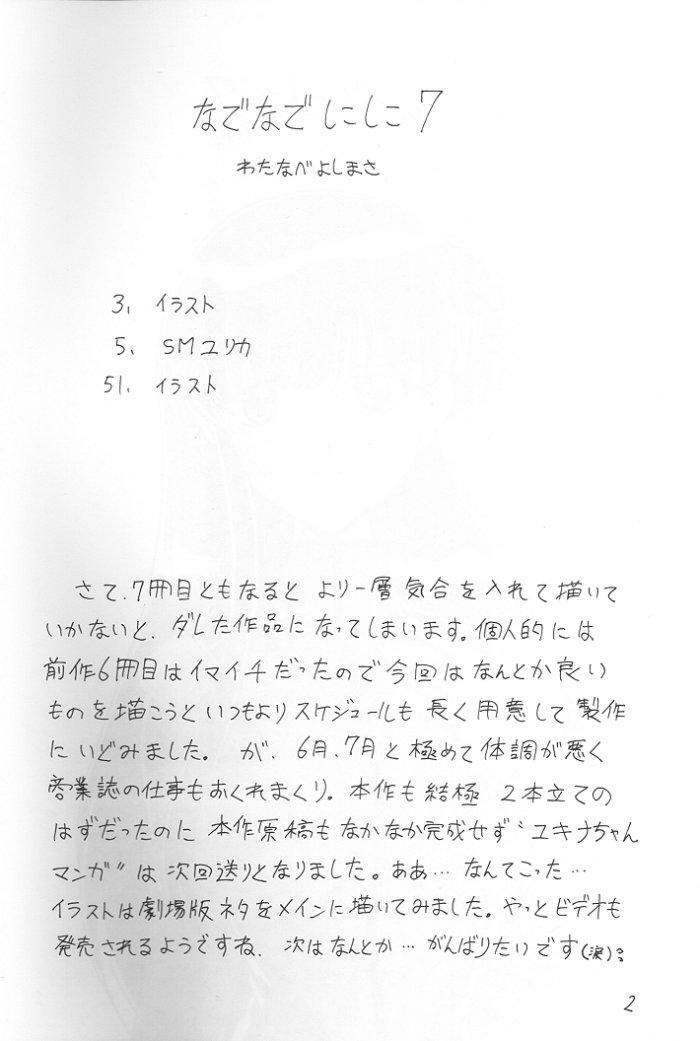 なでなでしこ7
わたなべよしまさ
3、イラスト
5、SMユリカ
51、イラスト
さて、7冊目ともなると より一層 気合を入れて描いて
いかないと、ダレた作品になってしまいます。個人的には
前作6冊目はイマイチだったので今回はなんとか良い
ものを描こうといつもよりスケジュールも長く用意して製作
にいどみました。 が、6月、7月と極めて体調が悪く
商業誌の仕事もおくれまくり。本作も結極 2本立ての
はずだったのに 本作原稿もなかなか完成せず“ユキナちゃん
マンガ”は次回送りとなりました。ああ…なんてこった…
イラストは劇場版ネタをメインに描いてみました。やっとビデオも
発売されるようですね、次はなんとか…がんばりたいです(涙)
2